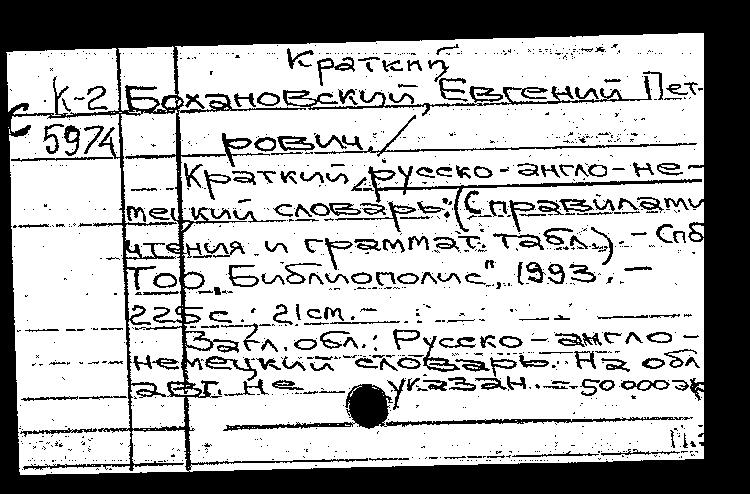 Краткий
К-2 Бохановский, Евгений Пет-
С
5974 рович.
Краткий русско-англо-не-
мецкий словарь: (С правилами
чтения и граммат. табл.). - Спб
ТОО „Библиополис", 1993. -
225 с.; 21 см. -
Загл. обл.: Русско-англо-
немецкий словарь. На обл
авт. не указан. = 50000 эк